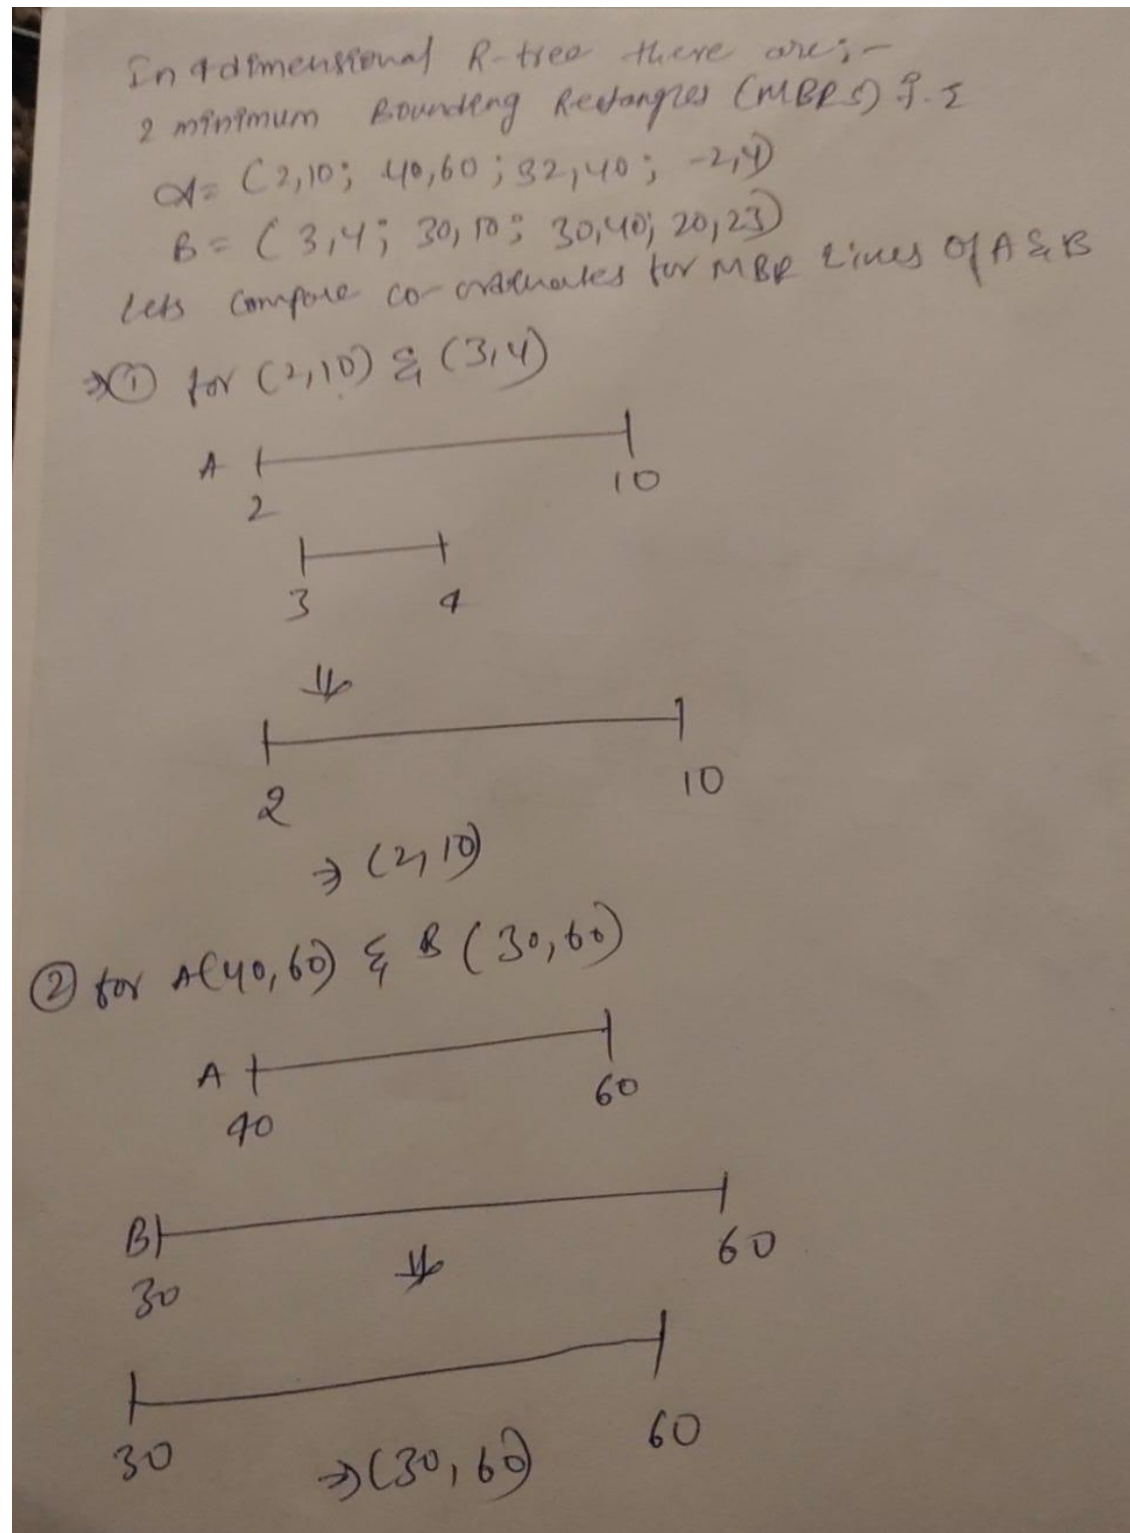 In 4dimensional R-tree there are;-
2 minimum Bounding Rectangles (MBRs) i.e
A= (2,10; 40,60; 32,40; -2,4)
B= (3,4; 30,10; 30,40; 20,23)
Lets compare co-ordinates for MBR Lines Of A & B
⇒① for (2,10) & (3,4)
A
2 10
3 4
⇓
2 10
⇒ (2,10)
② for A(40,60) & B (30,60)
A
40 60
B
30 60
⇓
30 60
⇒(30,60)